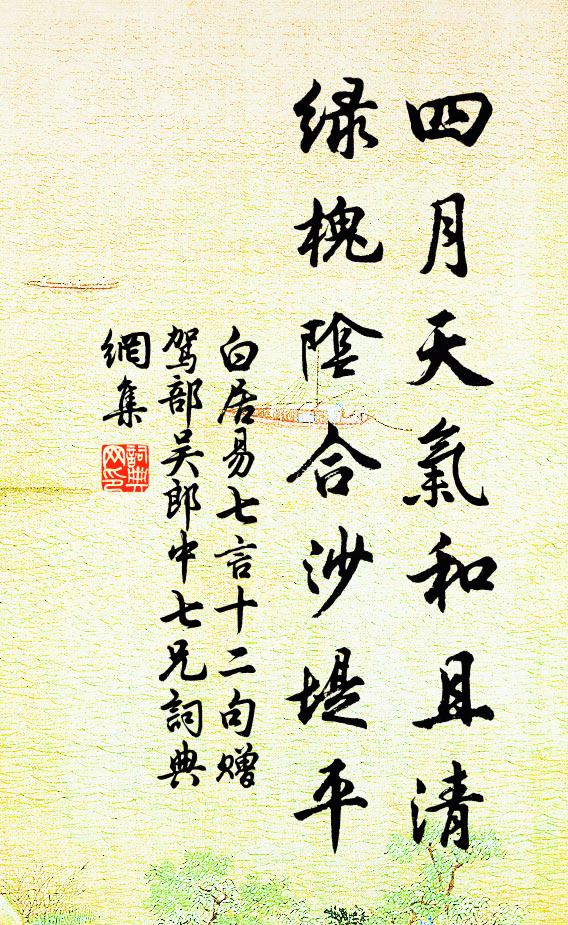 四月天氣和且清
緑槐陰合沙堤平
白居易七言十二句赠
駕部吴郎中七兄詞典
網集
詞典
网印